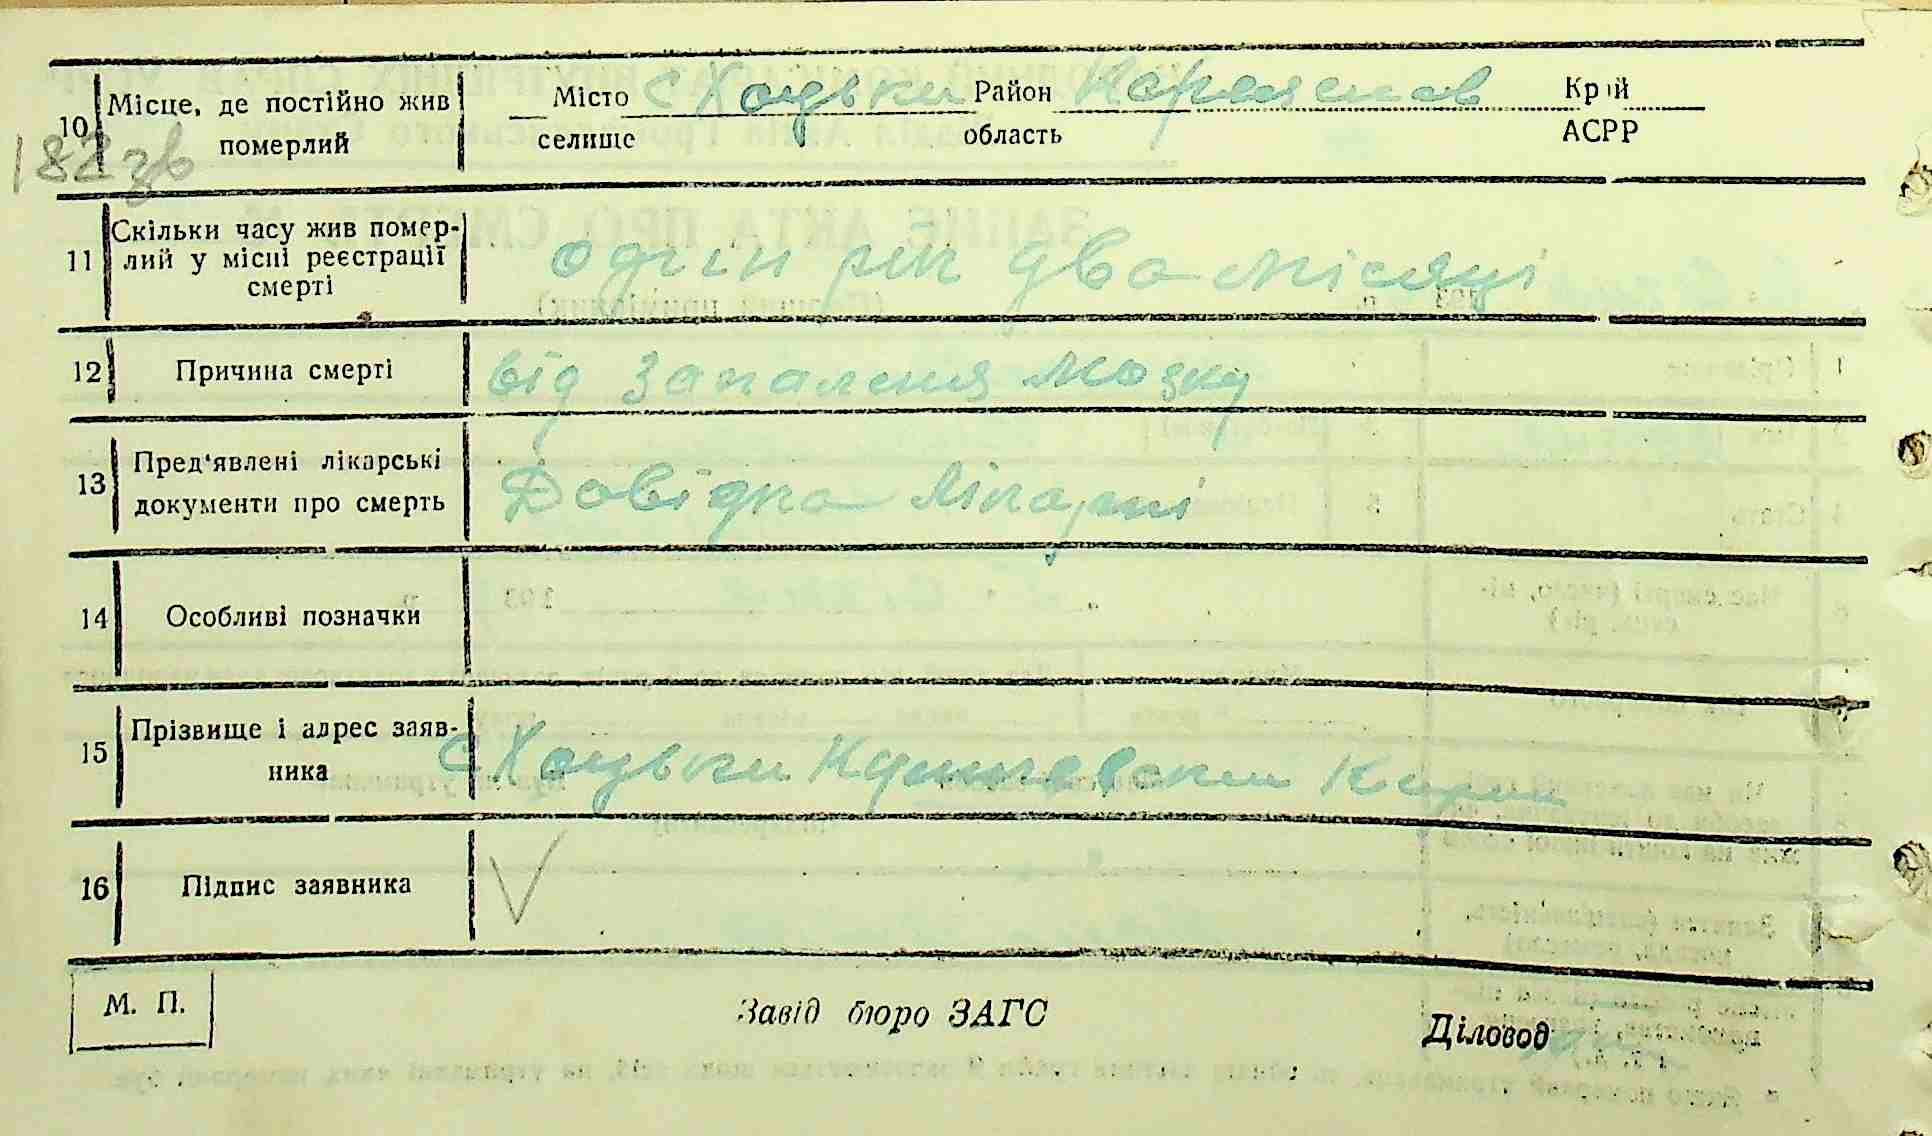 10 Місце, де постійно жив померлий
182 зв
Місто с Хоцьки Район Переяслав Край
селище область АСРР
11 Скільки часу жив помер-
лий у місці реєстрації
смерті
один рік два місяці
12 Причина смерті
від запалення мозку
13 Пред'явлені лікарські
документи про смерть
Довідка лікарні
14 Особливі позначки
15 Прізвище і адрес заяв-
ника
с Хоцьки
16 Підпис заявника
М. П.
Завід бюро ЗАГС
Діловод